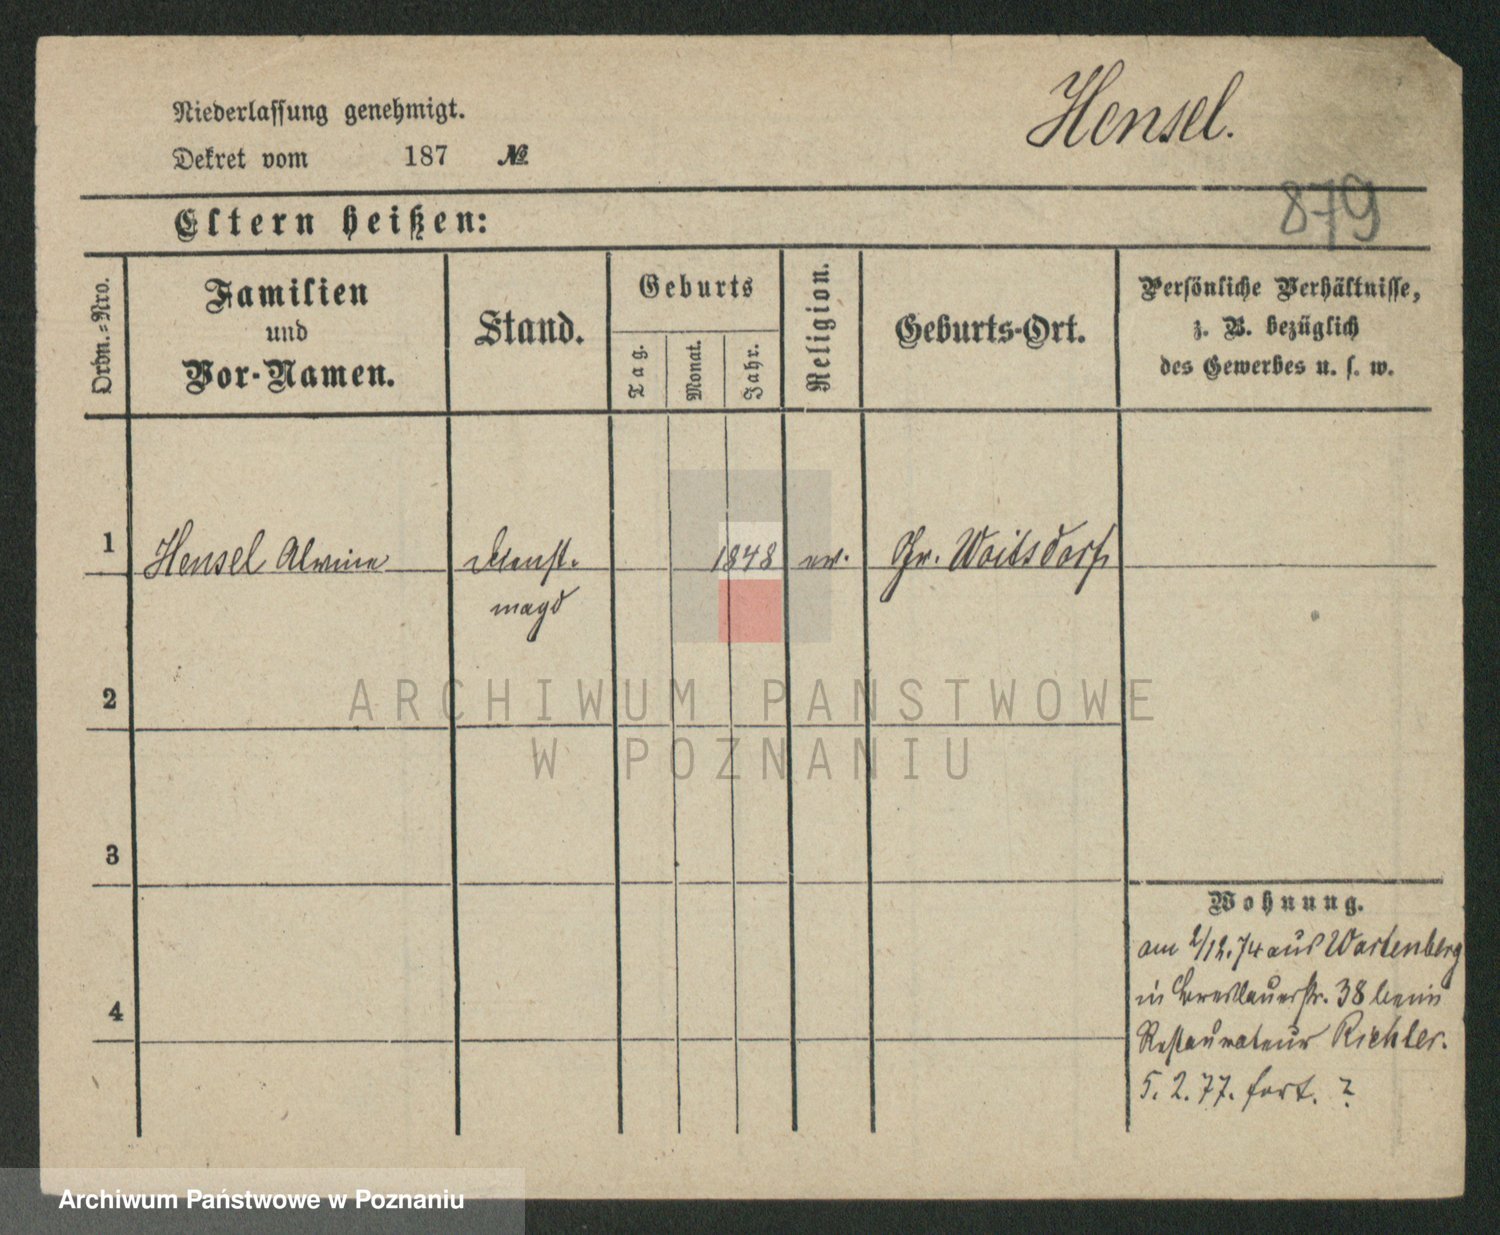 Niederlassung genehmigt.
Hensel.
Dekret vom 187 №
879
Eltern heißen:
Ordn.-Nro.
Familien
und
Vor-Namen.
Stand.
Geburts
Tag.
Monat.
Jahr.
Religion.
Geburts-Ort.
Persönliche Verhältnisse,
z. B. bezüglich
des Gewerbes u. s. w.
1 Hensel Alwine Dienst- 1848 ev. Gr. Woitsdorf
magd
2
3
4
Wohnung.
am 2/12.74 aus Wartenberg
in Breslauerstr. 38 beim
Restaurateur Richter.
5.2.77. fort. ?
ARCHIWUM PAŃSTWOWE
W POZNANIU
Archiwum Państwowe w Poznaniu